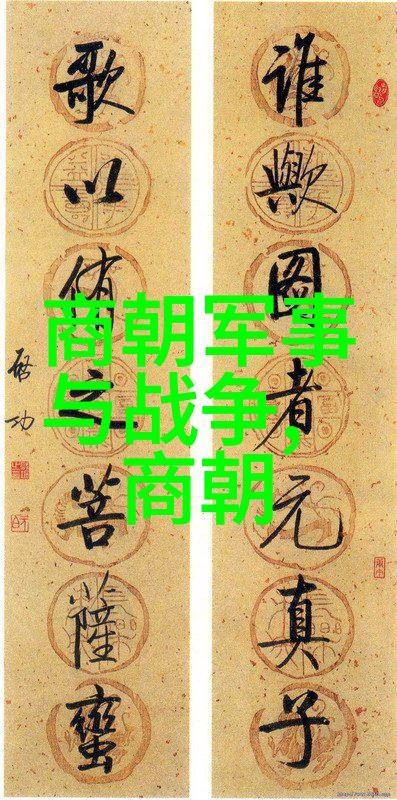 谁欤图者元真子
歌以侑之菩萨蛮
启功
商朝军事
与战争,
商朝